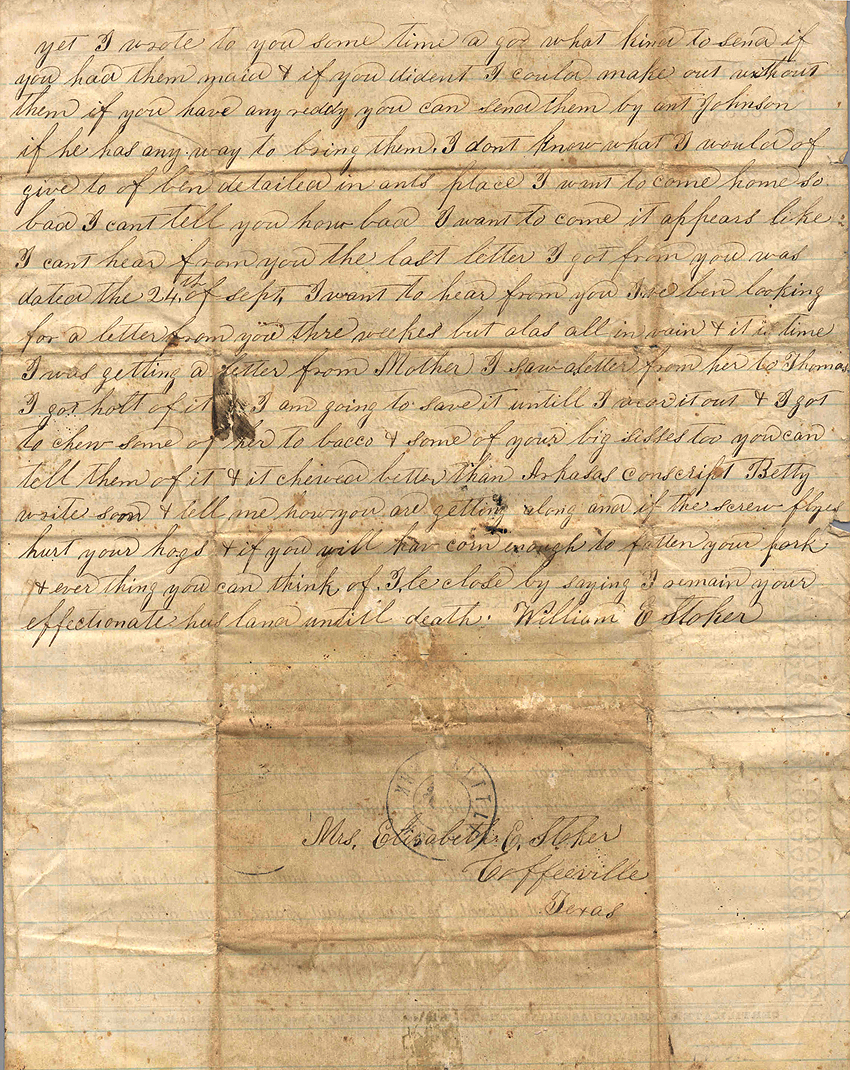 yet I wrote to you some time a go what kind to send if
you had them maid & if you dident I could make out without
them if you have any reddy you can send them by ant Johnson
if he has any way to bring them. I dont know what I would of
give to of ben detailed in ants place I want to come home so
bad I cant tell you how bad I want to come it appears like
I cant hear from you the last letter I got from you was
dated the 24th of sept, I want to hear from you Ive ben looking
for a letter from you thre weekes but alas all in vain & it is time
I was getting a letter from Mother I saw a letter from her to Thomas
I got holt of it I am going to save it untill I wear it out & I got
to chew some of her to bacco & some of your big sisses too you can
tell them of it & it chewed better than Arkasas conscript Betty
write soon & tell me how you are getting along and if the screw flyes
hurt your hogs & if you will hav corn enough to fatten your pork
& ever thing you can think of. Ile close by saying I remain your
effectionate husband untill death. William E Stoker
Mrs. Elisabeth E. Stoker
Coffeeville
Texas